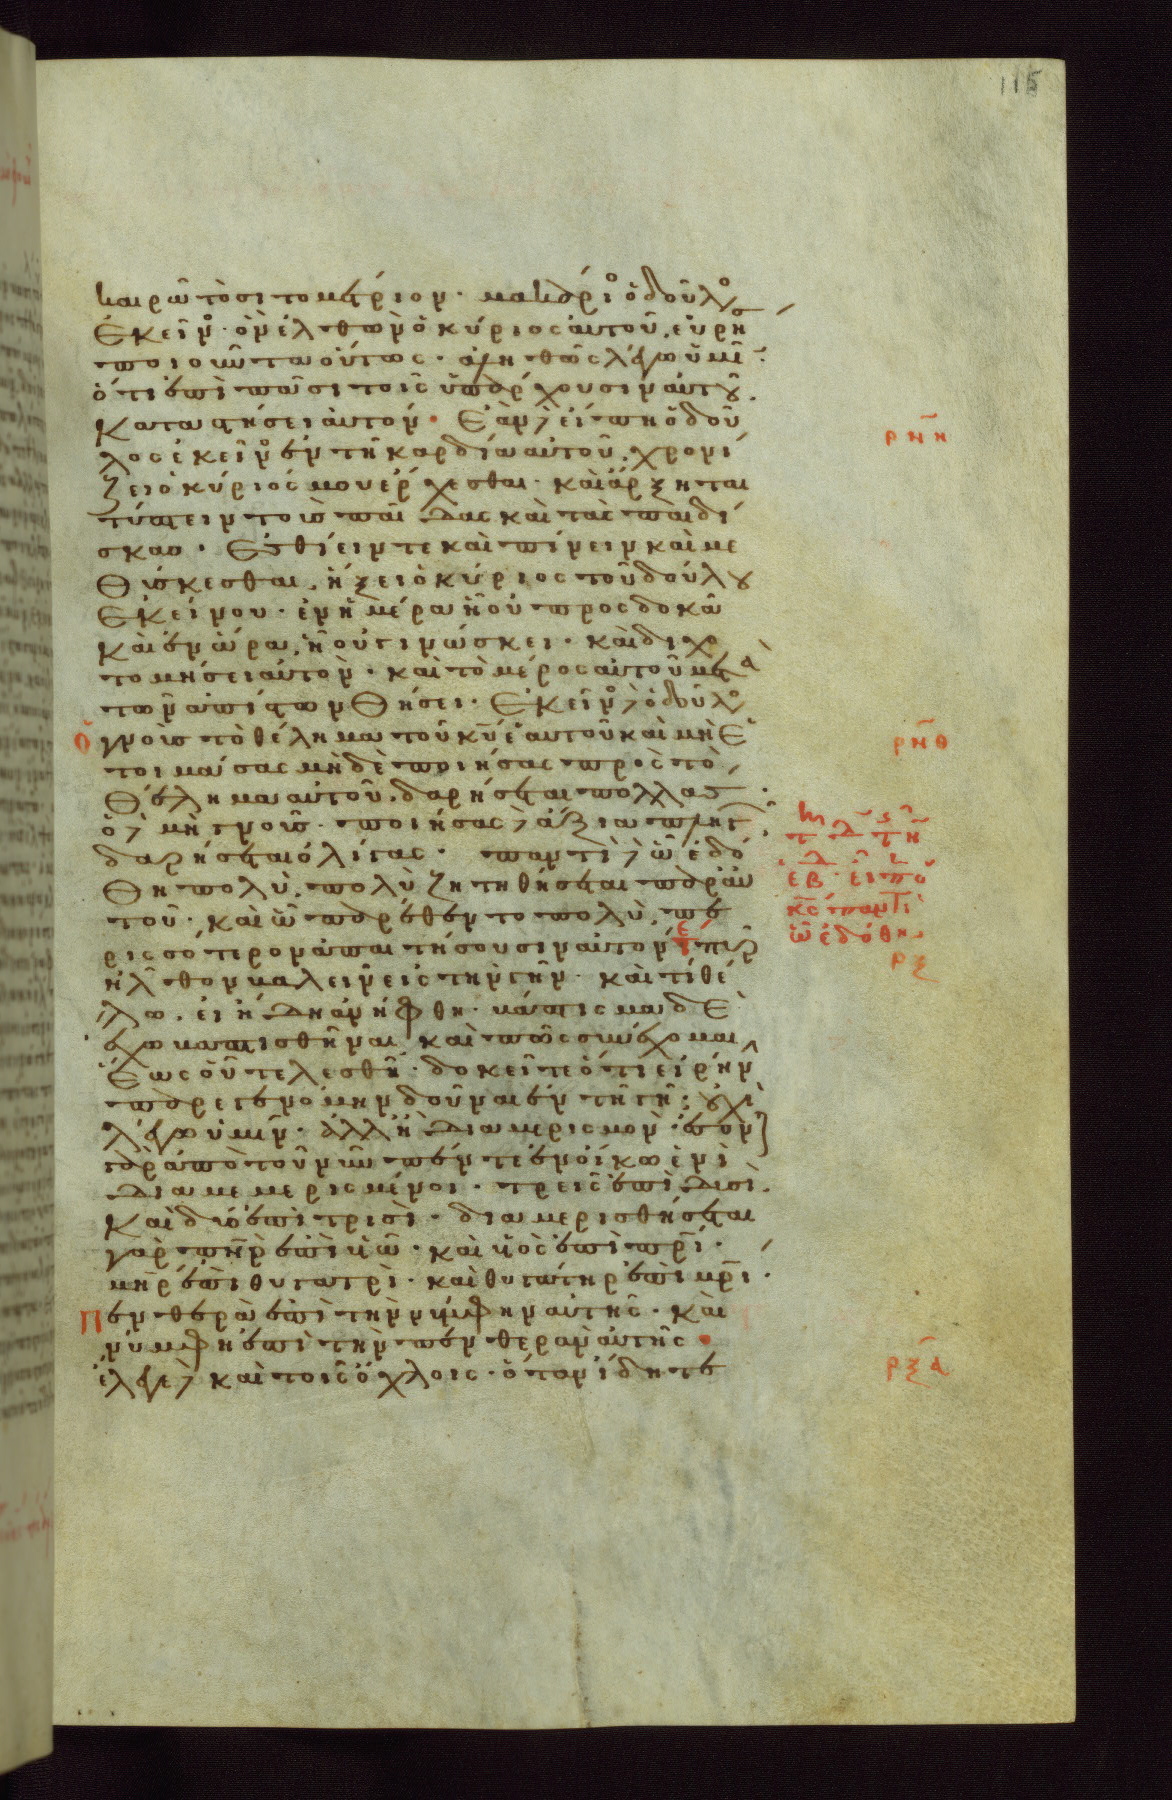 115
καιρῶ τὸ σιτομέτριον· μακάριος ὁ δοῦλος
ἐκεῖνος· ὃν ἐλθὼν ὁ κύριος αὐτοῦ, εὑρή
ποιοῦντα οὕτως· ἀληθῶς λέγω ὑμῖν·
ὅτι ἐπὶ πᾶσι τοῖς ὑπάρχουσιν αὐτοῦ.
καταστήσει αὐτόν· Ἐὰν δὲ εἴπη ὁ δοῦ
ρνη
λος ἐκεῖνος ἐν τῆ καρδία αὐτοῦ, χρονί
ζει ὁ κύριός μου ἔρχεσθαι· καὶ ἄρξηται
τύπτειν τοὺς παῖδας καὶ τὰς παιδί
σκας· Ἐσθίειν τε καὶ πίνειν καὶ με
θύσκεσθαι, ἥξει ὁ κύριος τοῦ δούλου
ἐκείνου· ἐν ἡμέρα ἧ οὐ προσδοκᾶ
καὶ ἐν ὥρα, ἧ οὐ γινώσκει· καὶ διχο
τομήσει αὐτὸν· καὶ τὸ μέρος αὐτοῦ μετὰ
τῶν ἀπίστων θήσει· Ἐκεῖνος δὲ ὁ δοῦλος
ὁ γνοὺς τὸ θέλημα τοῦ κυ ἑαυτοῦ καὶ μὴ ἑ
ρνθ
τοιμάσας μηδὲ ποιήσας πρὸς τὸ
θέλημα αὐτοῦ, δαρήσεται πολλάς·
ὁ δὲ μὴ γνοὺς· ποιήσας δὲ ἄξια πληγῶν,
δαρήσεται ὀλίγας· παντὶ δὲ ὧ ἐδό
θη πολὺ, πολὺ ζητηθήσεται παρ' αὐ
εἶπεν ὁ
τοῦ· καὶ ὧ παρέθεντο πολὺ, πε
κς παντὶ
ρισσότερον ἀπαιτήσουσιν αὐτόν· πῦρ
ὧ ἐδόθη
ρξ
ἦλθον βαλεῖν εἰς τὴν γῆν· καὶ τί θέ
λω, εἰ ἤδη ἀνήφθη· βάπτισμα δὲ ἔ
χω βαπτισθῆναι, καὶ πῶς συνέχομαι
ἕως οὗ τελεσθῆ· δοκεῖτε ὅτι εἰρήν
παρεγενόμην δοῦναι ἐν τῆ γῆ; οὐχὶ
λέγω ὑμῖν· ἀλλ' ἢ διαμερισμόν· ἔσον
γὰρ ἀπὸ τοῦ νῦν πέντε ἐν οἴκω ἑνὶ
διαμεμερισμένοι· τρεῖς ἐπὶ δυσὶ.
καὶ δύο ἐπὶ τρισὶ· διαμερισθήσεται
γὰρ πηρ ἐπὶ υἱῶ· καὶ υἱὸς ἐπὶ πρι·
μηρ ἐπὶ θυγατρὶ· καὶ θυγάτηρ ἐπὶ μρι·
Πενθερὰ ἐπὶ τὴν νύμφην αὐτῆς· καὶ
νύμφη ἐπὶ τὴν πενθερὰν αὐτῆς·
ἔλεγε δὲ καὶ τοῖς ὄχλοις· ὅταν ἴδητε
ρξα